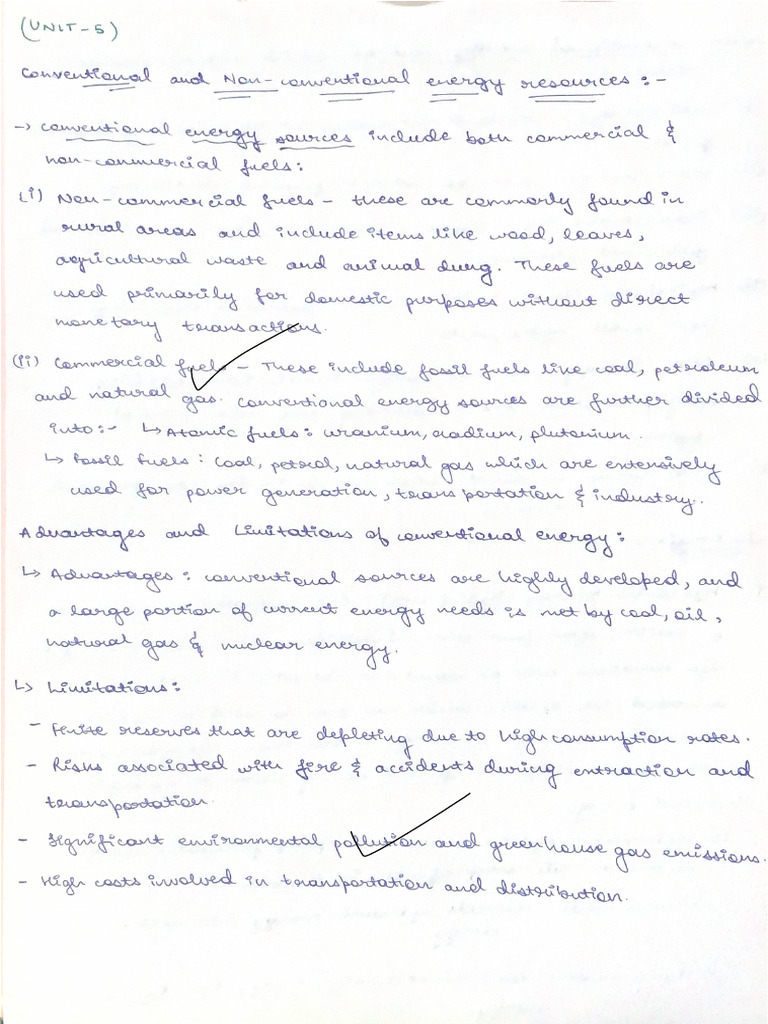 (UNIT-5)
Conventional and Non-conventional energy resources :-
→ Conventional energy sources include both commercial &
non-commercial fuels:
(i) Non-commercial fuels - these are commonly found in
rural areas and include items like wood, leaves,
agricultural waste and animal dung. These fuels are
used primarily for domestic purposes without direct
monetary transactions.
(ii) Commercial fuels - These include fossil fuels like coal, petroleum
and natural gas. Conventional energy sources are further divided
into:- ↳ Atomic fuels: uranium, radium, plutonium.
↳ Fossil fuels: Coal, petrol, natural gas which are extensively
used for power generation, transportation & industry.
Advantages and Limitations of conventional energy:
↳ Advantages: conventional sources are highly developed, and
a large portion of current energy needs is met by coal, oil,
natural gas & nuclear energy.
↳ Limitations:
- Finite reserves that are depleting due to high consumption rates.
- Risks associated with fire & accidents during extraction and
transportation.
- Significant environmental pollution and greenhouse gas emissions.
- High costs involved in transportation and distribution.